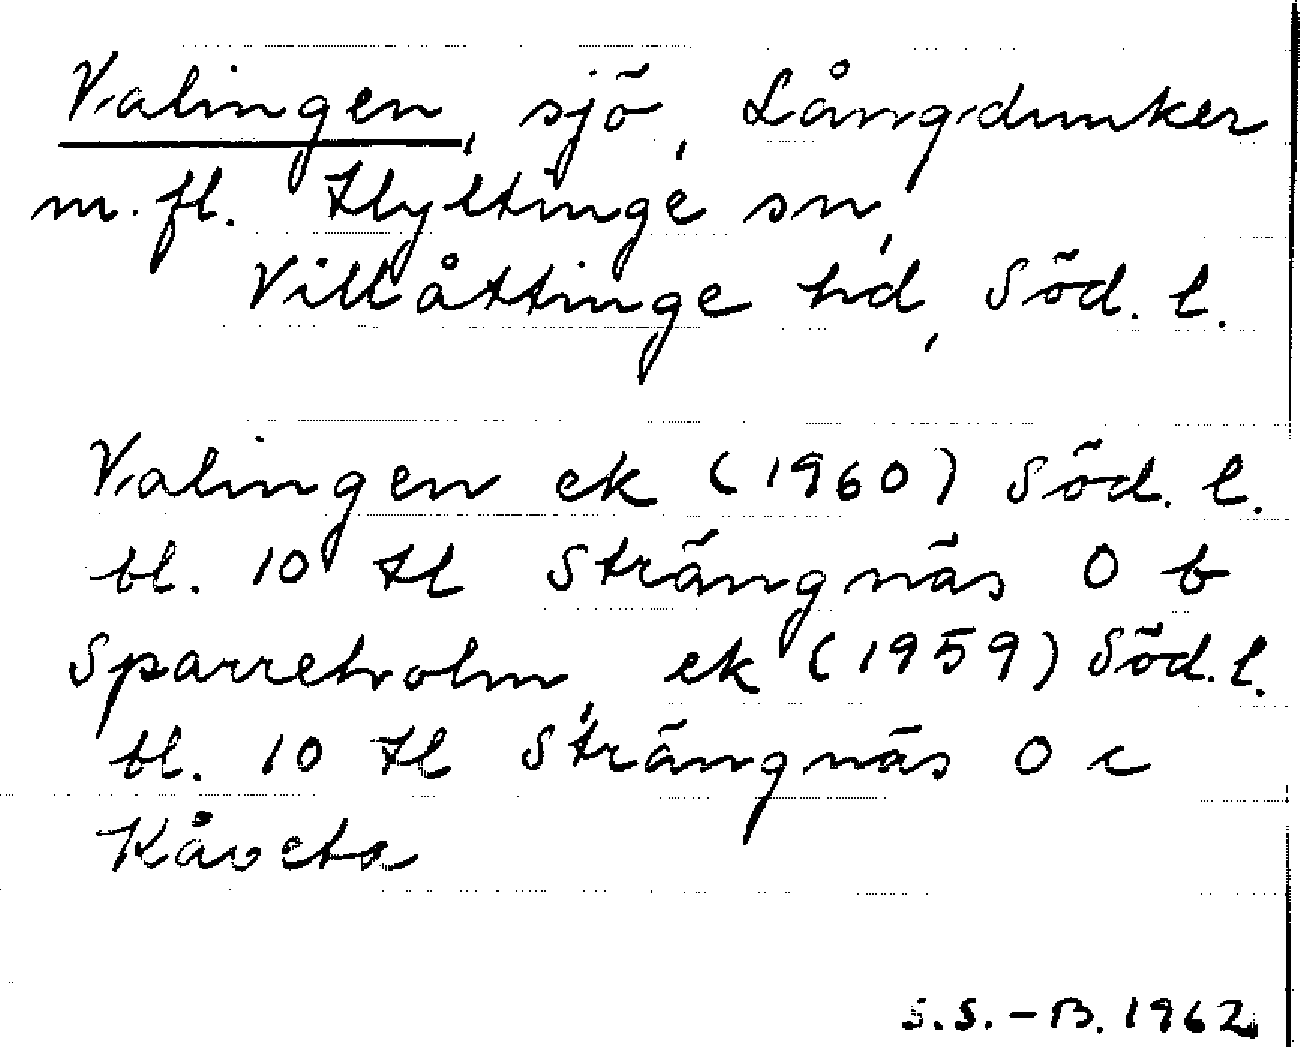 Valingen, sjö, Långdunker
m. fl. Hyltinge sn,
Villåttinge hd, Söd. l.
Valingen ek (1960) Söd. l.
bl. 10 H Strängnäs 0 b
Sparreholm, ek (1959) Söd. l.
bl. 10 H Strängnäs 0 c
Kåveta
S.S.-B. 1962